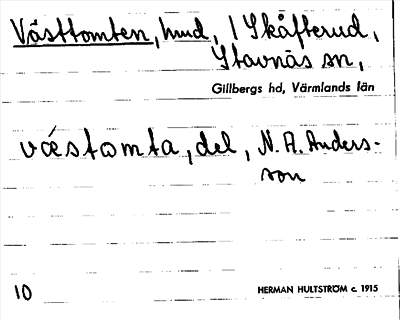 Västtomten, hmd, 1 Skåfterud,
Stavnäs sn,
Gillbergs hd, Värmlands län
vǽstomta, del, N. A. Anders-
son
10
HERMAN HULTSTRÖM c. 1915